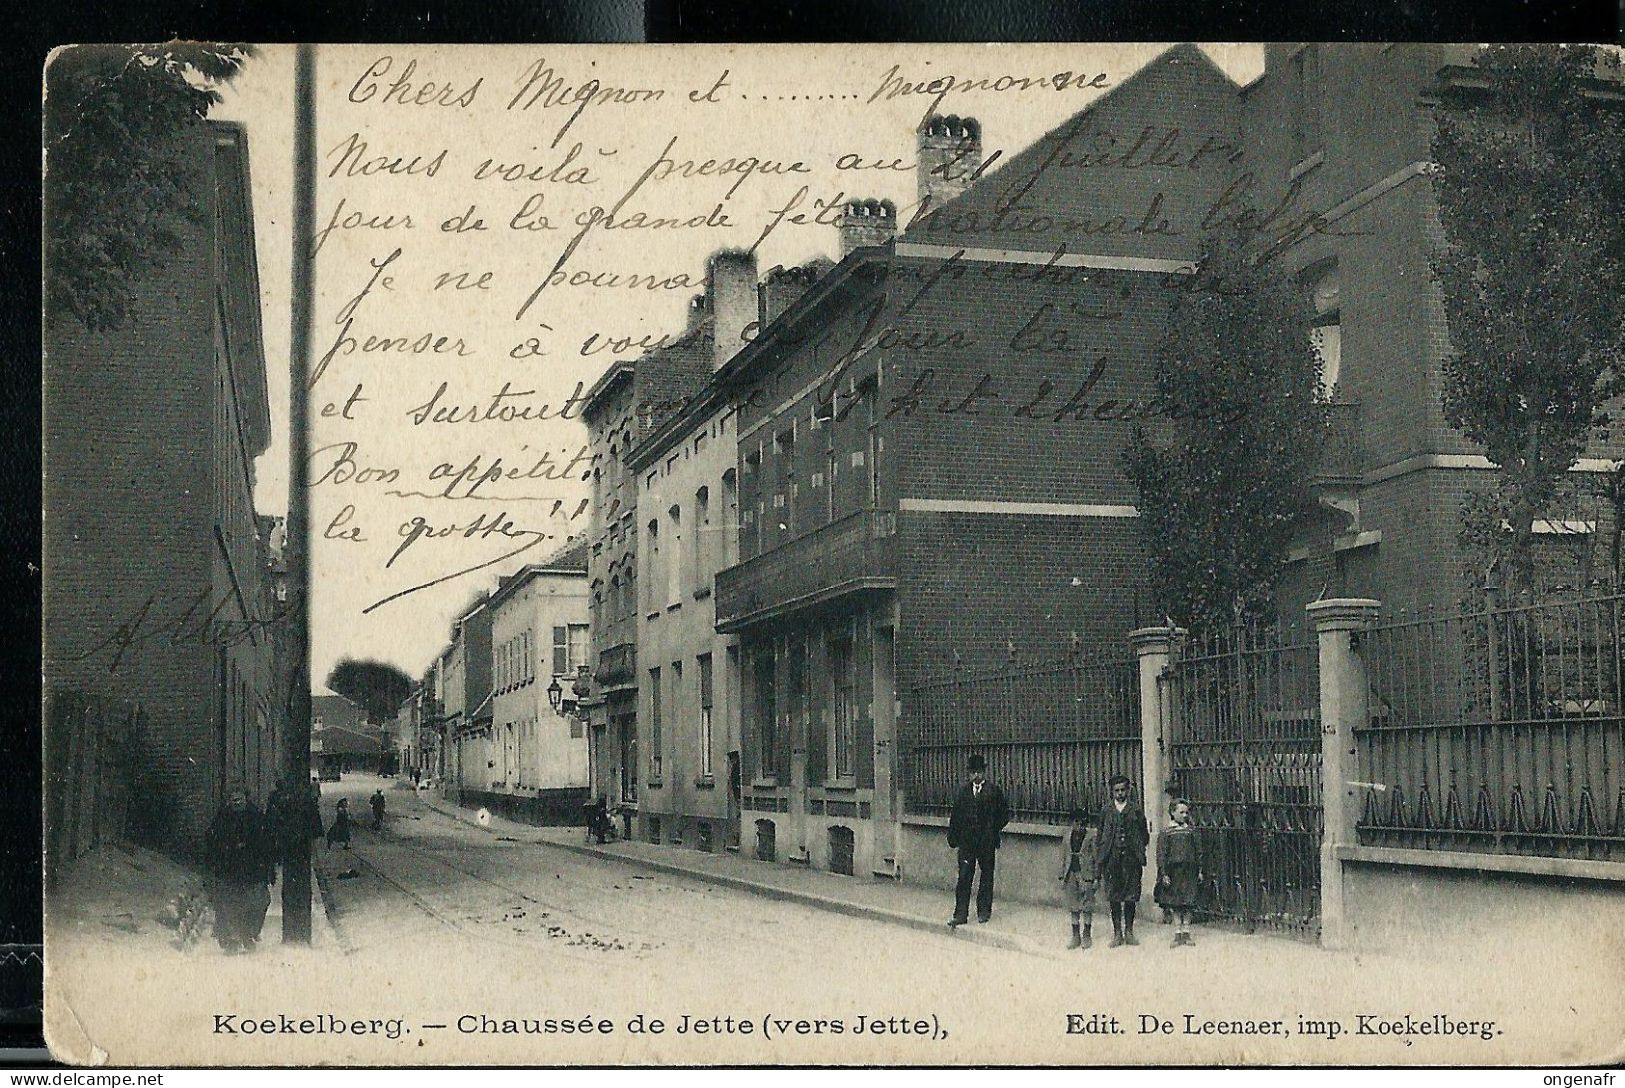 Chers Mignon et ......... Mignonne
Nous voilà presque au 21 Juillet
jour de la grande fête Nationale belge
Je ne pourrai empêcher de
penser à vous ce jour là
et surtout entre et 2 heures
Bon appétit
la grosse !!!
Koekelberg. — Chaussée de Jette (vers Jette),
Edit. De Leenaer, imp. Koekelberg.
delcampe.net
ongenafr